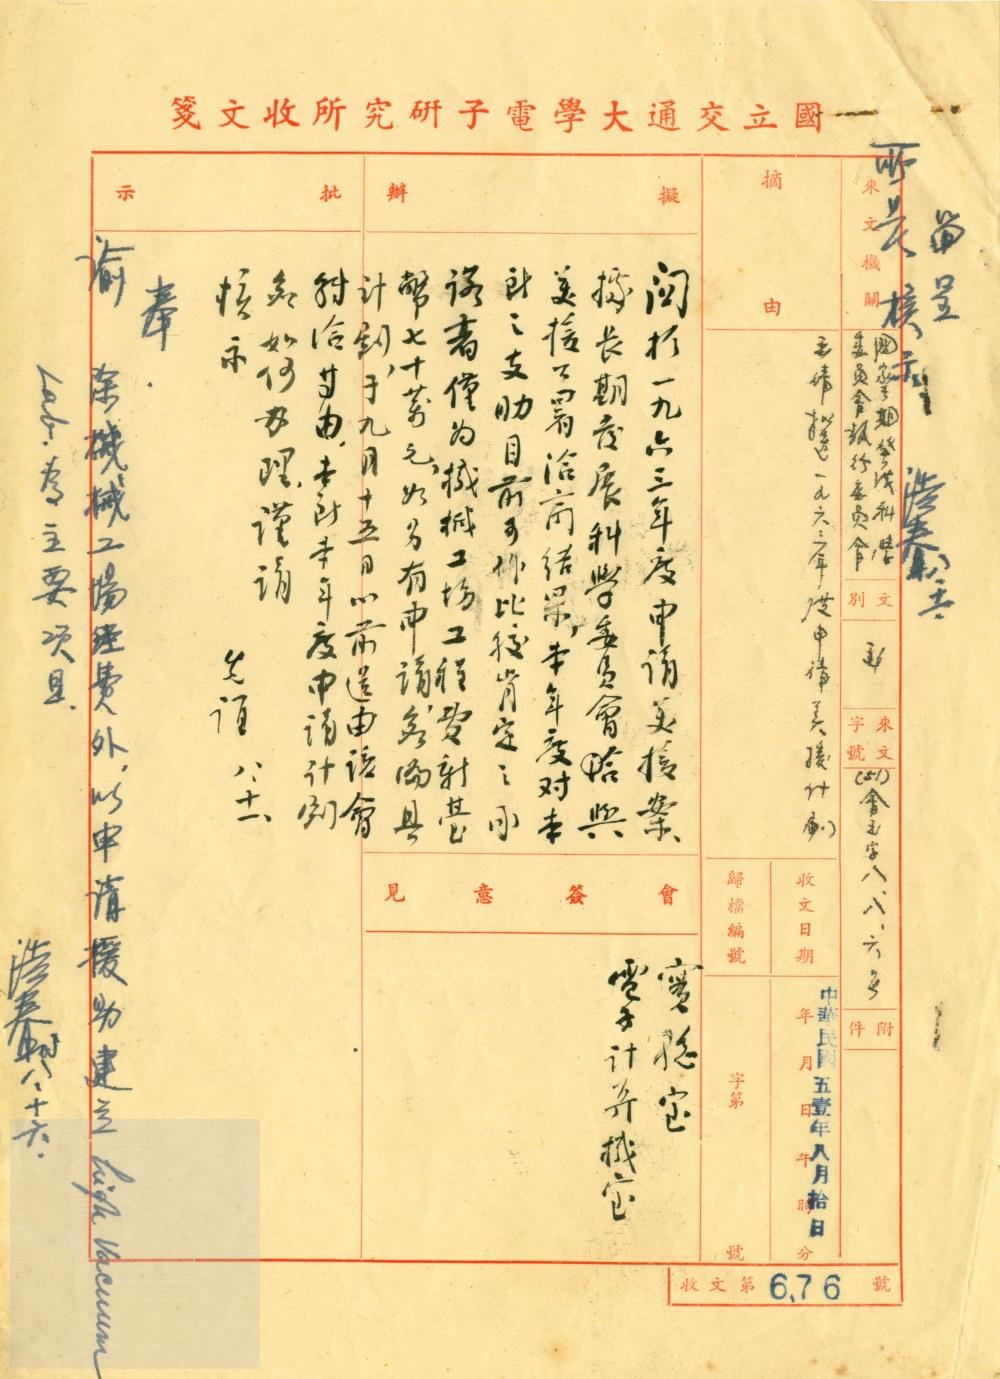 國立交通大學電子研究所收文箋
來文機關
國家長期發展科學
委員會執行委員會
文別
來文字號
(51)會王字八、八、六號
附件
摘由
函請擬送一九六三年度申請美援計劃
收文日期
年月日午時分
中華民國五壹年八月拾日
歸檔編號
字第號
擬辦
關於一九六三年度申請美援案、
據長期發展科學委員會告與
美援公署洽商結果，本年度對本
所之支助目前可作比較肯定之承
諾者僅為機械工場工程費新臺
幣七十萬元，如另有申請，亦需具
計劃，于九月十五日以前送由該會
轉洽等由，本所本年度申請計劃
如何辦理，謹請
核示
八、十一
會簽意見
實驗室
電子計算機室
批示
奉
諭
除機械工場經費外，以申請援助建立 high vacuum
Lab. 為主要項目。
浩春 八、十六.
留呈
所長核示
浩春
收文第676號